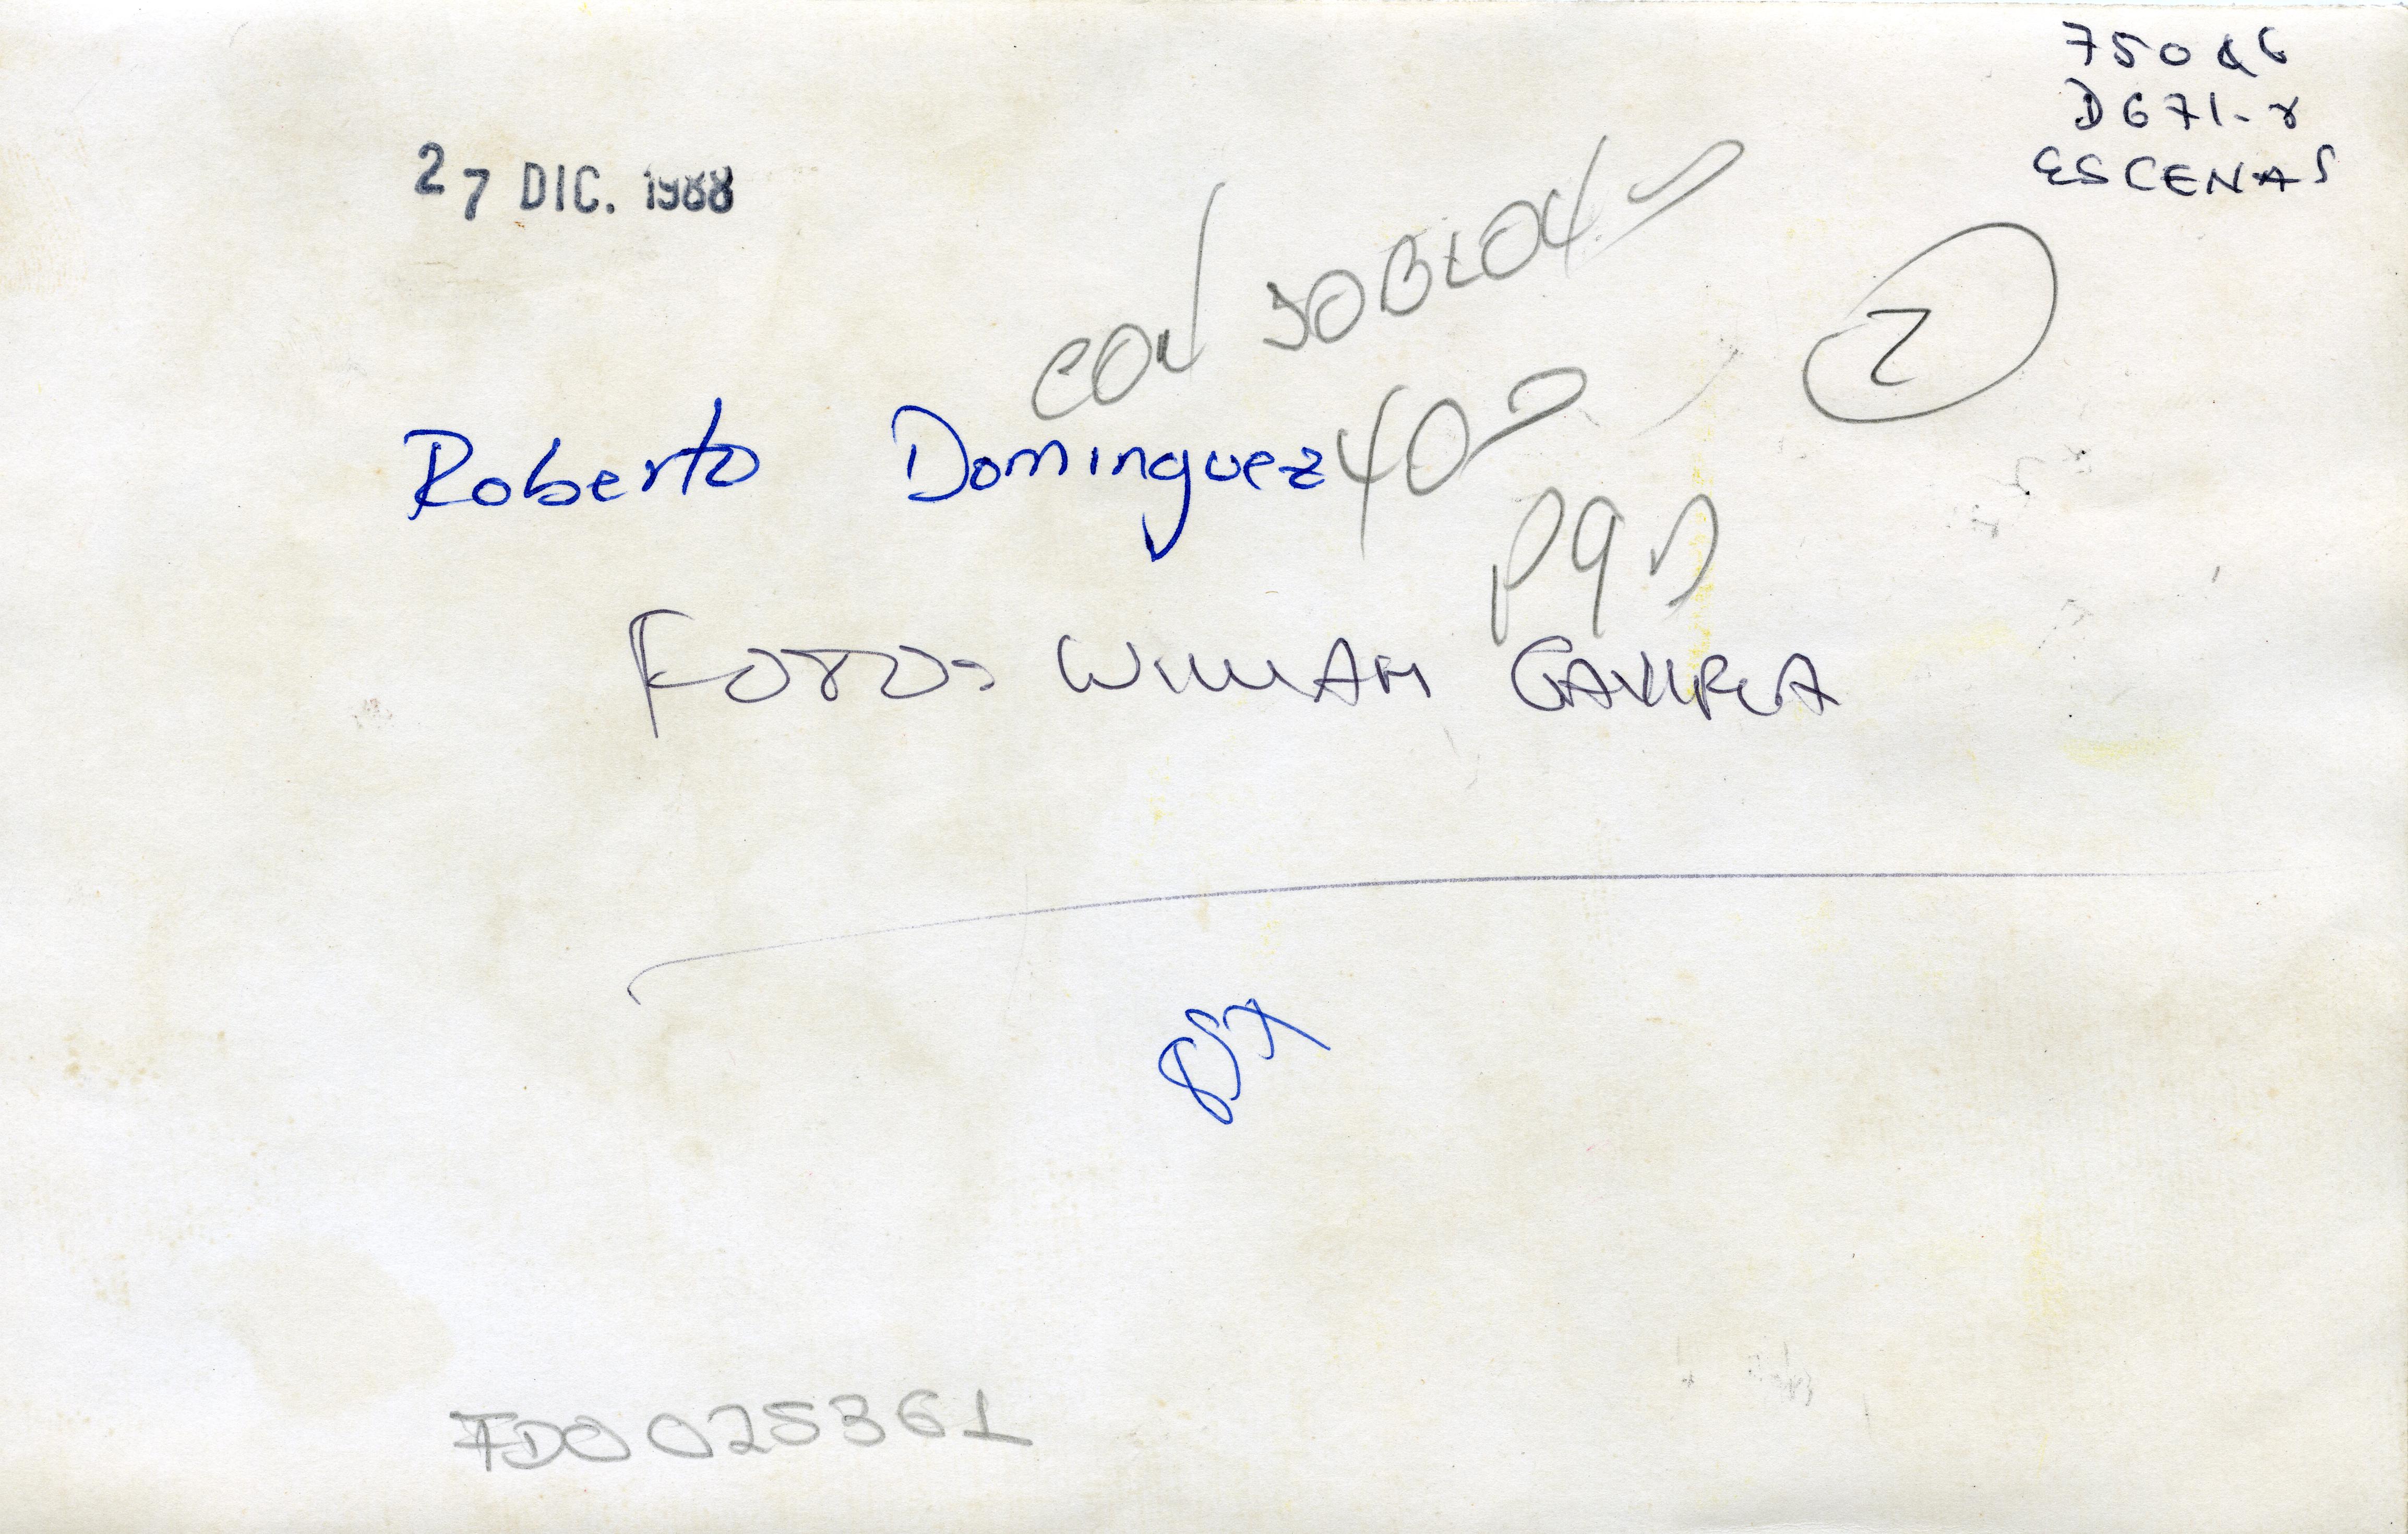 D671-r
ESCENAS
27 DIC. 1988
CON
2
Roberto Dominguez 40
FOTOS WILLIAM GAVIRIA
FDO 025361